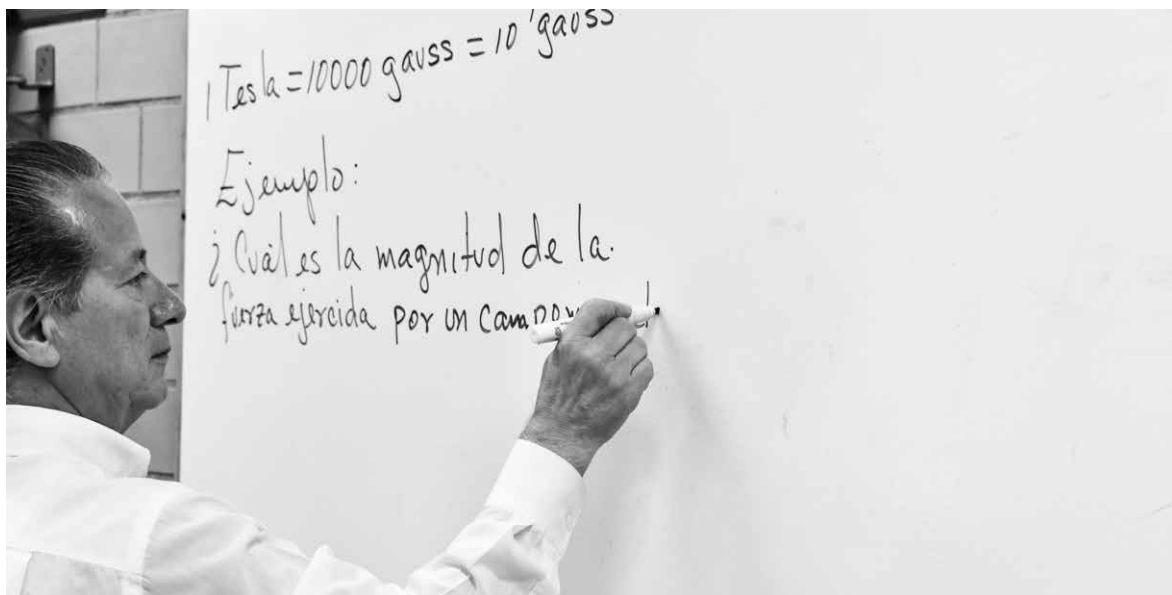 1 Tesla = 10000 gauss = 10 gauss
Ejemplo:
¿Cuál es la magnitud de la
fuerza ejercida por un